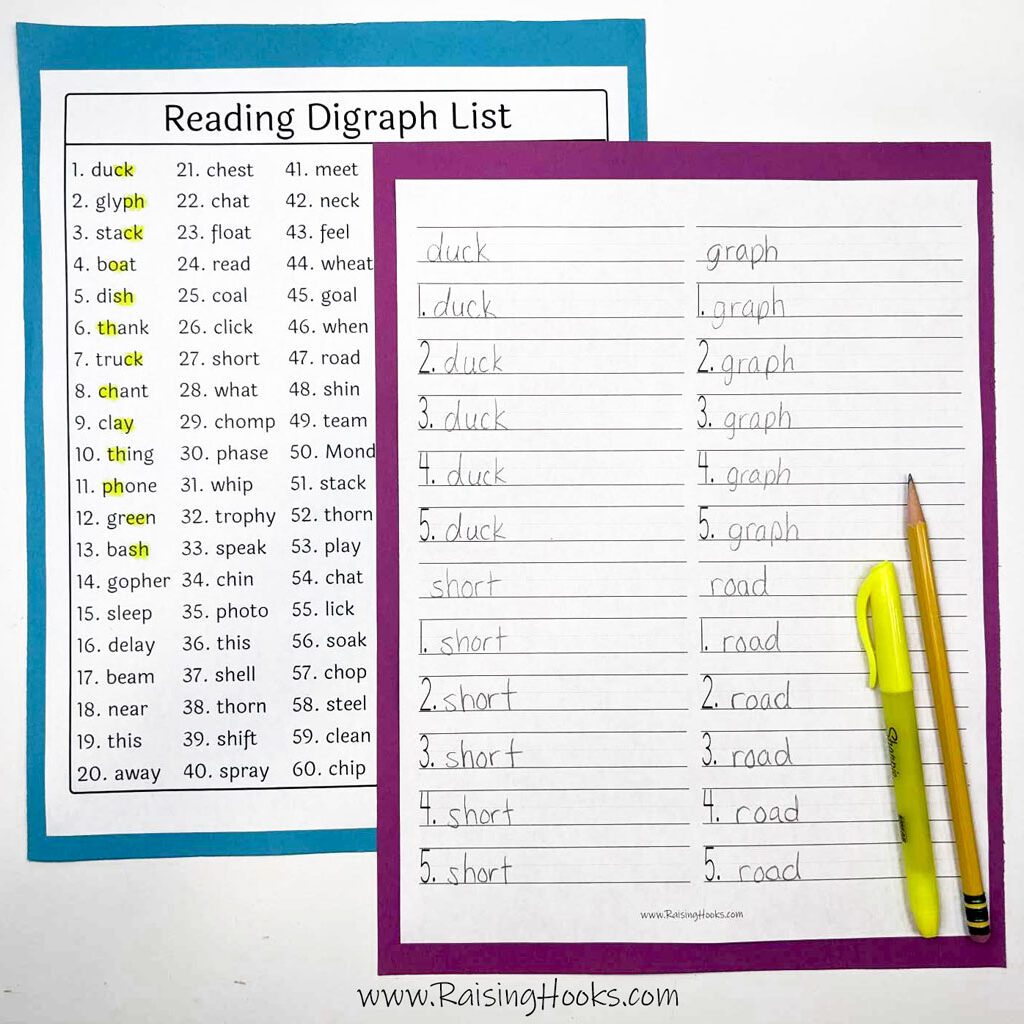 Reading Digraph List
1. duck 21. chest 41. meet
2. glyph 22. chat 42. neck
3. stack 23. float 43. feel
4. boat 24. read 44. wheat
5. dish 25. coal 45. goal
6. thank 26. click 46. when
7. truck 27. short 47. road
8. chant 28. what 48. shin
9. clay 29. chomp 49. team
10. thing 30. phase 50. Mond
11. phone 31. whip 51. stack
12. green 32. trophy 52. thorn
13. bash 33. speak 53. play
14. gopher 34. chin 54. chat
15. sleep 35. photo 55. lick
16. delay 36. this 56. soak
17. beam 37. shell 57. chop
18. near 38. thorn 58. steel
19. this 39. shift 59. clean
20. away 40. spray 60. chip
duck graph
1. duck 1. graph
2. duck 2. graph
3. duck 3. graph
4. duck 4. graph
5. duck 5. graph
short road
1. short 1. road
2. short 2. road
3. short 3. road
4. short 4. road
5. short 5. road
www.RaisingHooks.com
Sharpie
www.RaisingHooks.com